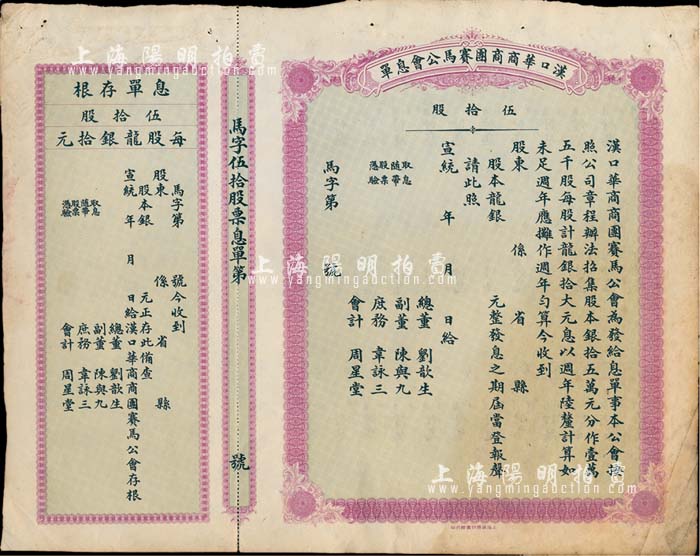 漢口華商商團賽馬公會息單
伍拾股
漢口華商商團賽馬公會為發給息單事本公會按
照公司章程辦法招集股本銀拾五萬元分作壹萬
五千股每股計龍銀拾大元息以週年陸釐計算如
未足週年應攤作週年勻算今收到
股東 係 省 縣
股本龍銀 元整發息之期屆當登報聲
請此照
宣統 年 月 日給
總董 劉歆生
副董 陳與九
庶務 韋詠三
會計 周星堂
取息
隨帶
股票
憑驗
馬字第 號
馬字伍拾股票息單第 號
息單存根
伍拾股
每股龍銀拾元
馬字第 號今收到
股東 係 省 縣
股本銀 元正存此備查
宣統 年 月 日給漢口華商商團賽馬公會存根
總董 劉歆生
副董 陳與九
庶務 韋詠三
會計 周星堂
取息
隨帶
股票
憑驗
上海陽明拍賣
www.yangmingauction.com
上海陽明拍賣
www.yangmingauction.com
上海陽明拍賣
www.yangmingauction.com
上海陽明拍賣
www.yangmingauction.com
上海陽明拍賣
www.yangmingauction.com